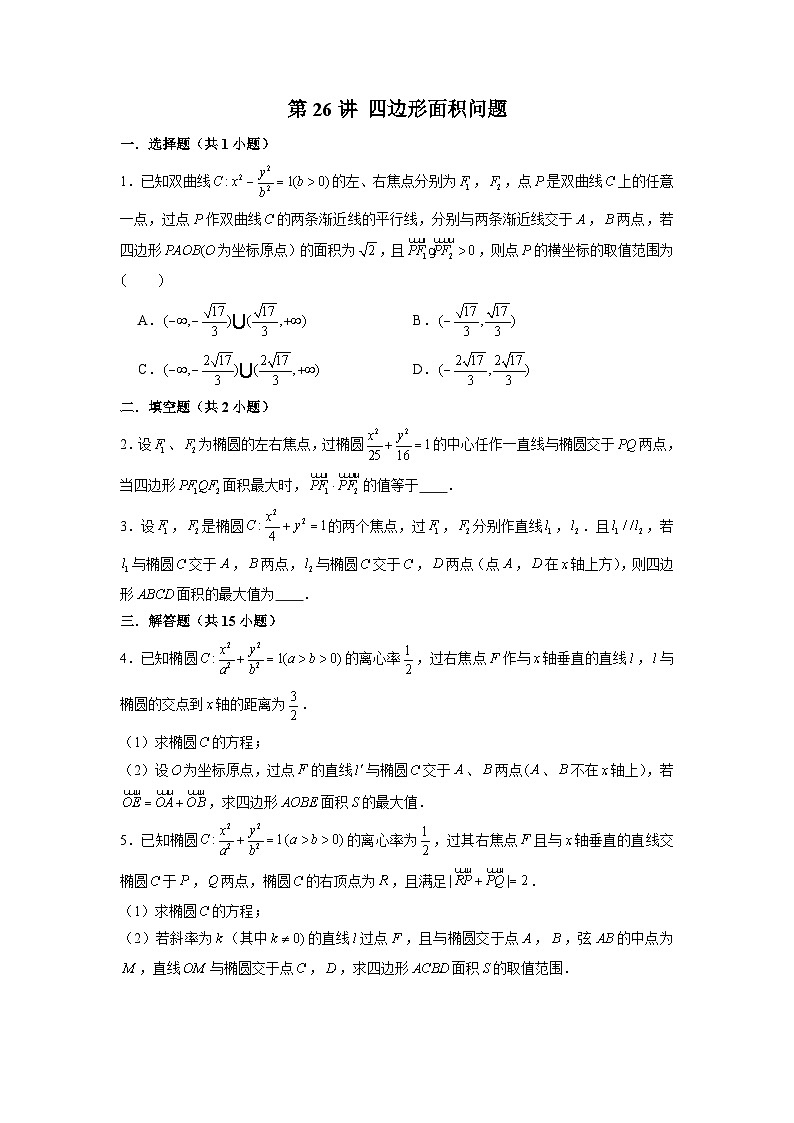 第 26 讲 四边形面积问题
一．选择题（共 1 小题）
1．已知双曲线 C : x² − y²/b² = 1(b > 0) 的左、右焦点分别为 F₁，F₂，点 P 是双曲线 C 上的任意
一点，过点 P 作双曲线 C 的两条渐近线的平行线，分别与两条渐近线交于 A，B 两点，若
四边形 PAOB(O 为坐标原点）的面积为 √2，且 PF₁gPF₂ > 0，则点 P 的横坐标的取值范围为
(　　)
A．(−∞, −√17/3)⋃(√17/3, +∞)　　B．(−√17/3, √17/3)
C．(−∞, −2√17/3)⋃(2√17/3, +∞)　　D．(−2√17/3, 2√17/3)
二．填空题（共 2 小题）
2．设 F₁、F₂ 为椭圆的左右焦点，过椭圆 x²/25 + y²/16 = 1 的中心任作一直线与椭圆交于 PQ 两点，
当四边形 PF₁QF₂ 面积最大时，PF₁ · PF₂ 的值等于____．
3．设 F₁，F₂ 是椭圆 C : x²/4 + y² = 1 的两个焦点，过 F₁，F₂ 分别作直线 l₁，l₂．且 l₁ / / l₂，若
l₁ 与椭圆 C 交于 A，B 两点，l₂ 与椭圆 C 交于 C，D 两点（点 A，D 在 x 轴上方），则四边
形 ABCD 面积的最大值为____．
三．解答题（共 15 小题）
4．已知椭圆 C : x²/a² + y²/b² = 1(a > b > 0) 的离心率 1/2，过右焦点 F 作与 x 轴垂直的直线 l，l 与
椭圆的交点到 x 轴的距离为 3/2．
（1）求椭圆 C 的方程；
（2）设 O 为坐标原点，过点 F 的直线 l′ 与椭圆 C 交于 A、B 两点 (A、B 不在 x 轴上），若
OE = OA + OB，求四边形 AOBE 面积 S 的最大值．
5．已知椭圆 C : x²/a² + y²/b² = 1 (a > b > 0) 的离心率为 1/2，过其右焦点 F 且与 x 轴垂直的直线交
椭圆 C 于 P，Q 两点，椭圆 C 的右顶点为 R，且满足 | RP + PQ |= 2．
（1）求椭圆 C 的方程；
（2）若斜率为 k（其中 k ≠ 0) 的直线 l 过点 F，且与椭圆交于点 A，B，弦 AB 的中点为
M，直线 OM 与椭圆交于点 C，D，求四边形 ACBD 面积 S 的取值范围．